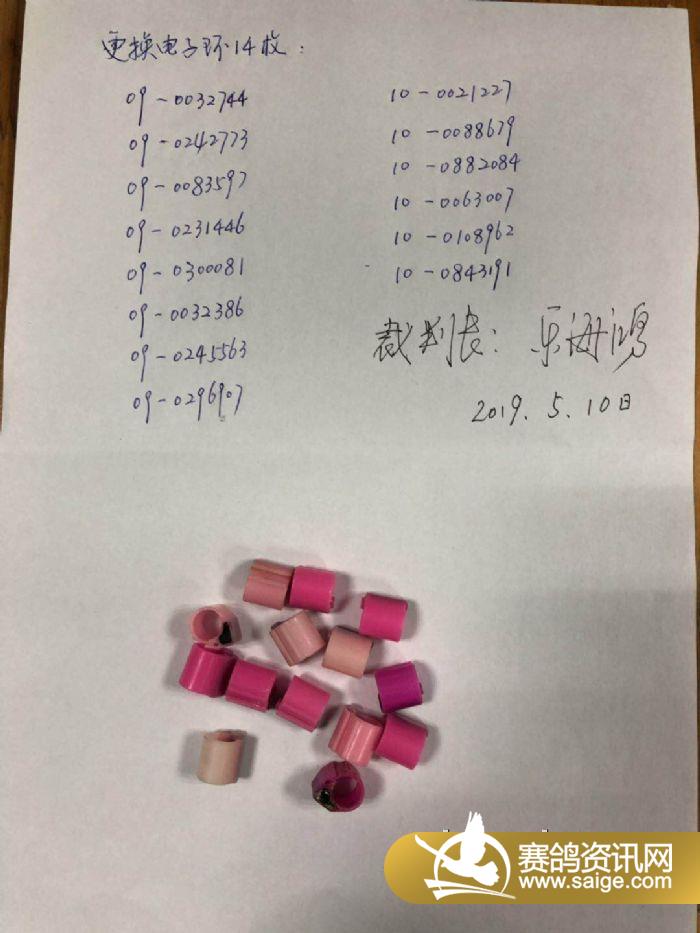 更换电子环14枚:
09-0032744
09-0242773
09-0083597
09-0231446
09-0300081
09-0032386
09-0245563
09-0296907
10-0021227
10-0088679
10-0882084
10-0063007
10-0108962
10-0843191
裁判长: 乐海鸿
2019.5.10日
赛鸽资讯网
www.saige.com